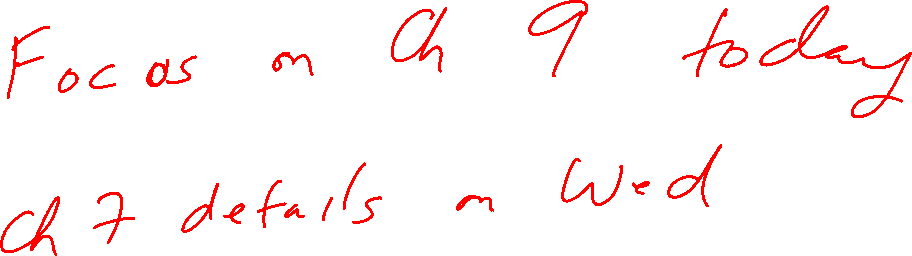 Focus on Ch 9 today
Ch 7 details on Wed